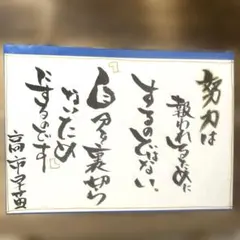 努力は
報われるために
するのではない、
「自分を裏切ら
ないため
にするのです」
高市早苗